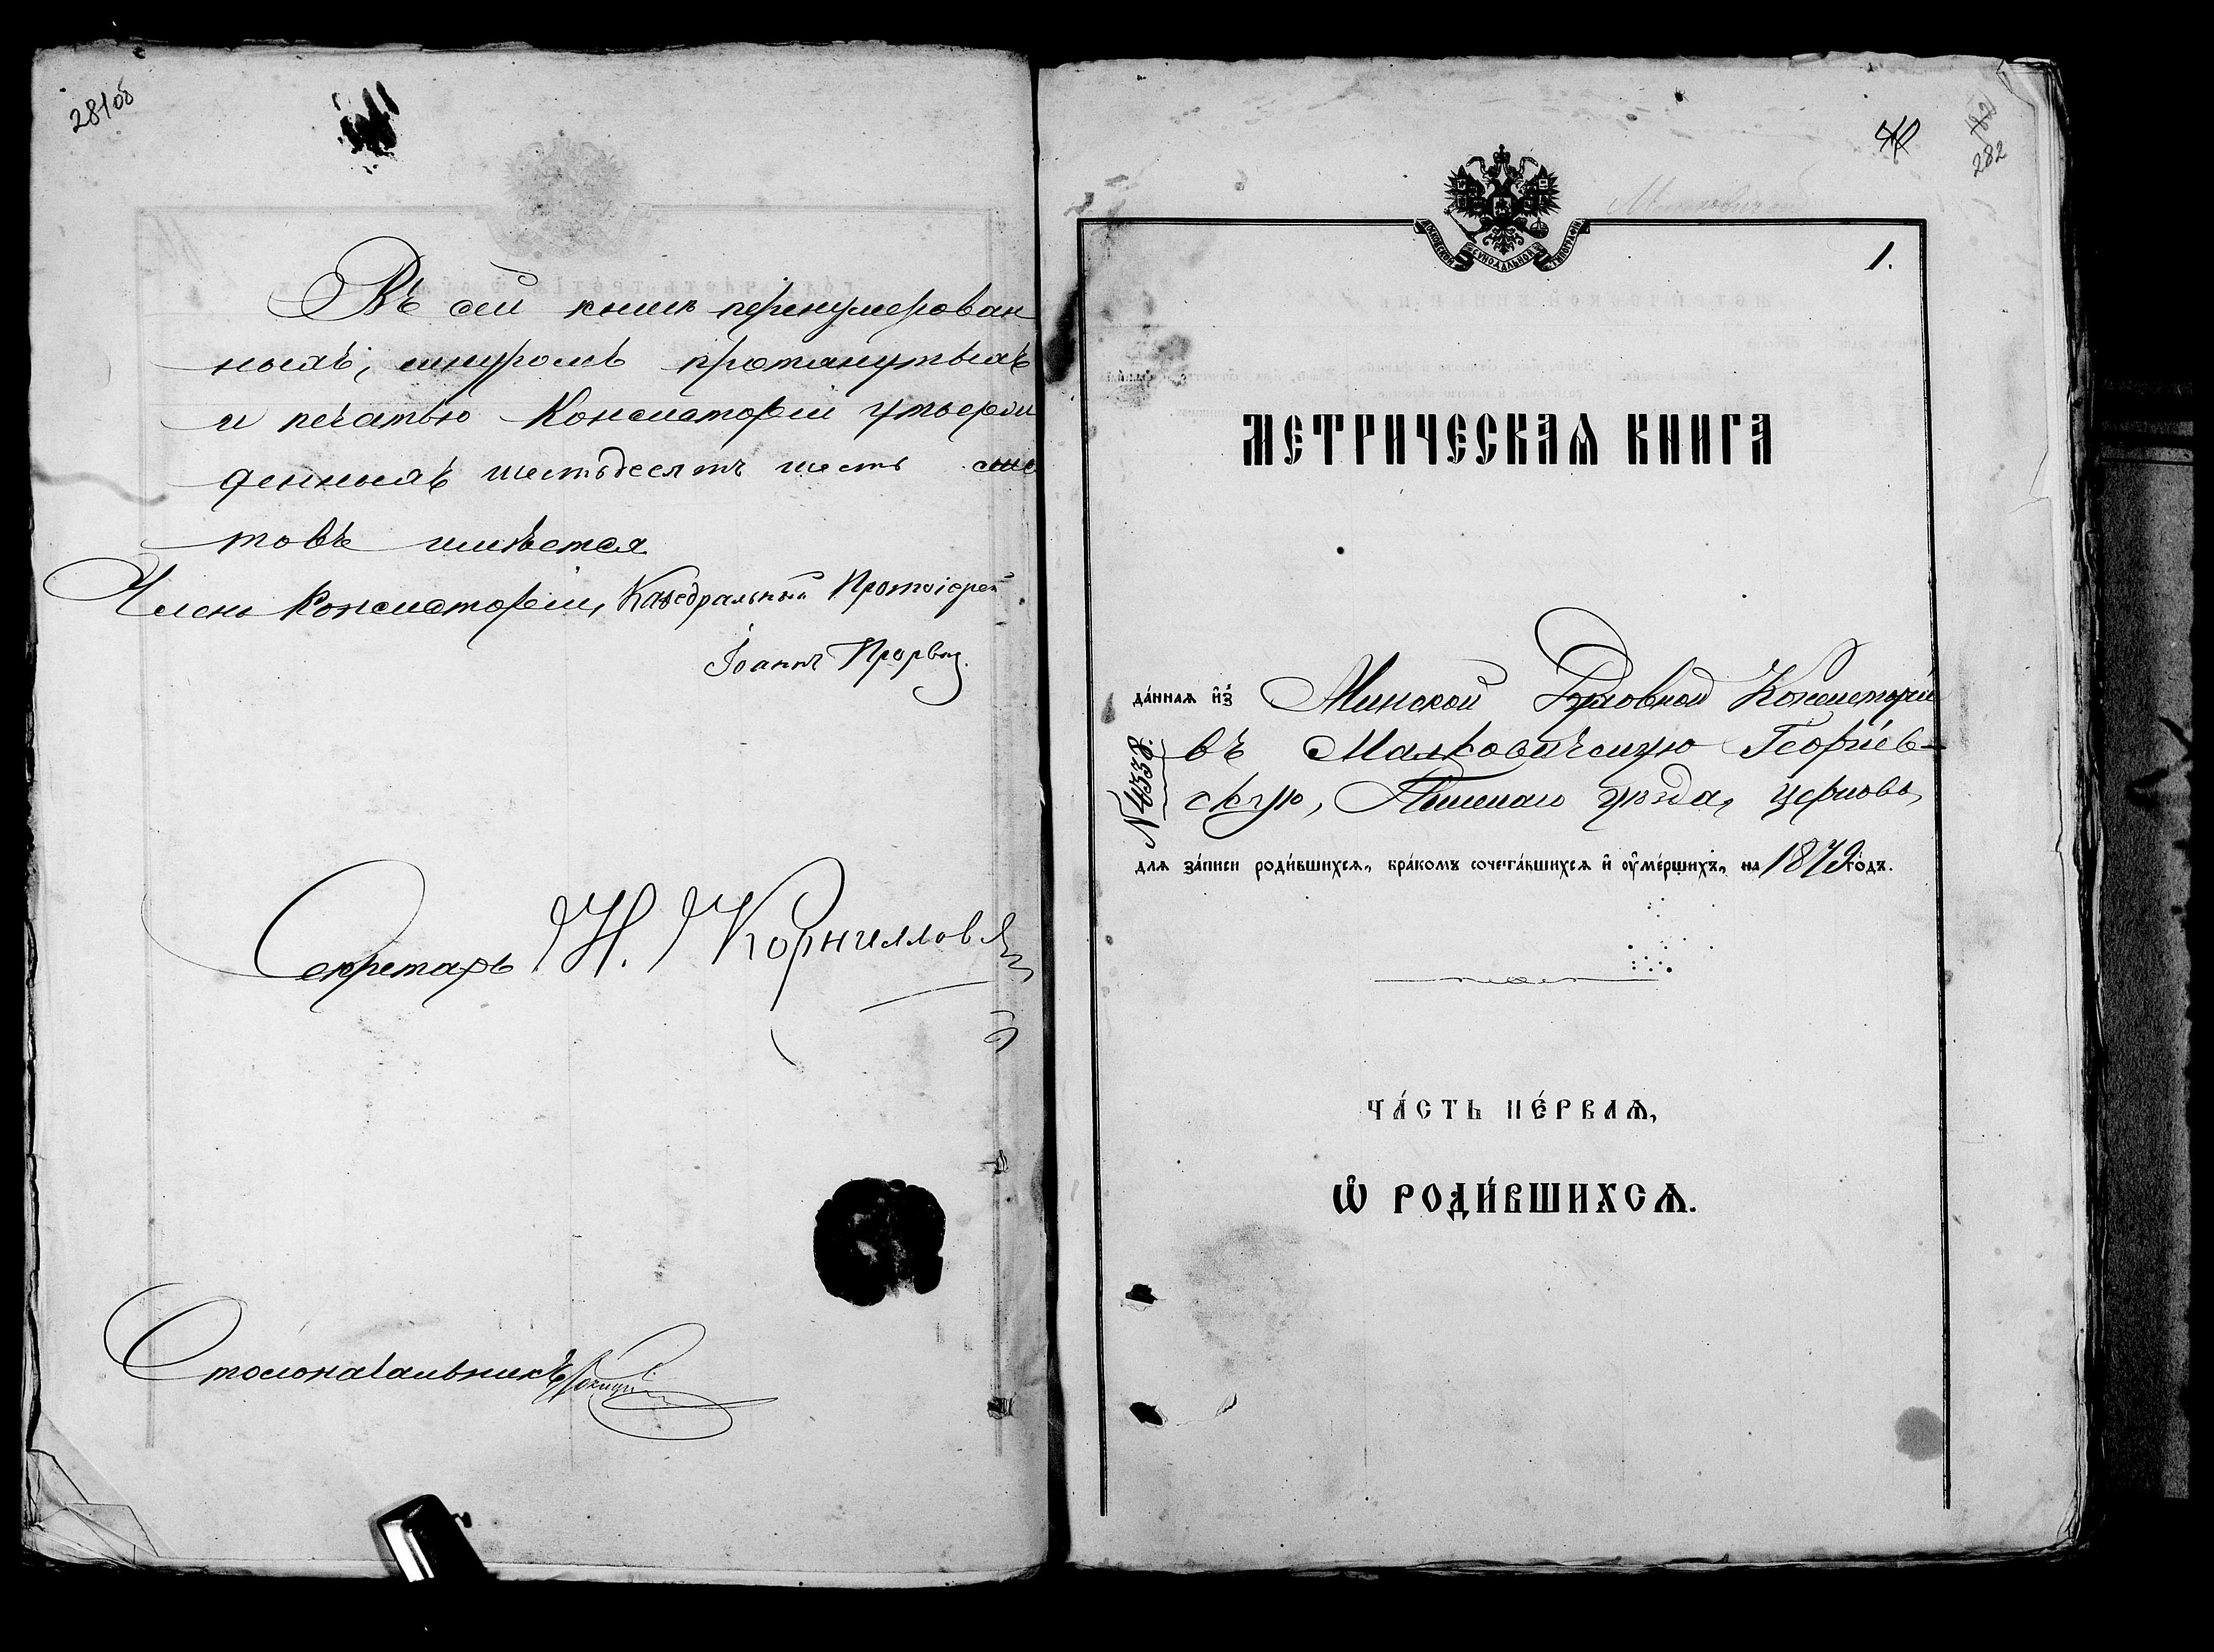 281об
Въ сей книгѣ перенумерован
ныхъ, шнуромъ протянутыхъ
и печатью Консисторіи утверж
денныхъ шестьдесятъ шесть лис
товъ имѣется
Членъ Консисторіи, Каѳедральный Протоіерей
Іоаннъ
Секретарь Н. Корнилловъ
Столоначальникъ
282
МОСКОВСКОЙ СѴНОДАЛЬНОЙ ТИПОГРАФІИ
1.
МЕТРИЧЕСКАѦ КНИГА
да́ннаѧ и҆з̾ Минской Духовной Консисторіи
въ Малковичскую Георгіев-
скую, Пинскаго уѣзда, церковь,
№ 4338.
для за́писи роди́вшихсѧ, бра́комъ сочета́вшихсѧ и҆ оу҆ме́ршихъ, на 1879 го́дъ.
ЧА́СТЬ ПЕ́РВАѦ,
Ѡ҆ РОДИ́ВШИХСѦ.